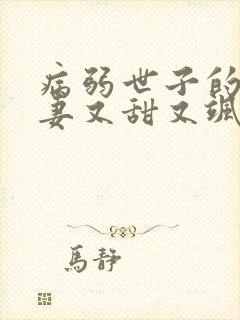 病弱世子的
妻又甜又飒
馬静